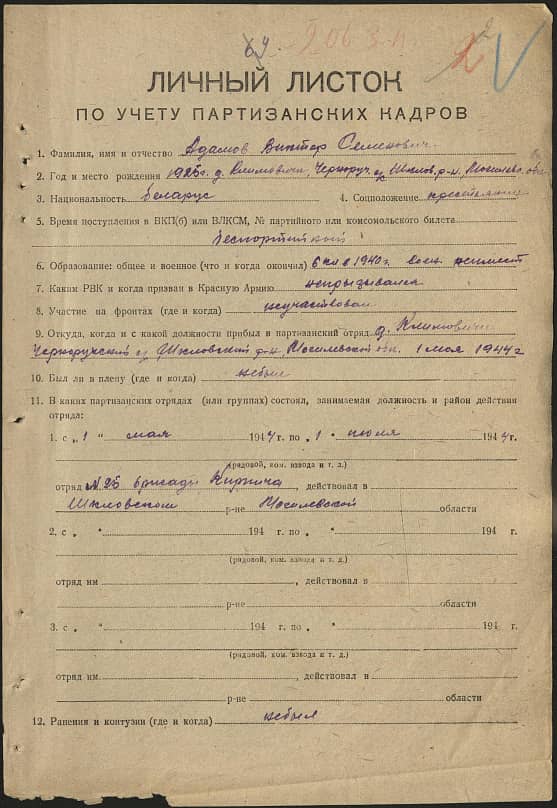 69. 206 3-п 2 2 V
ЛИЧНЫЙ ЛИСТОК
ПО УЧЕТУ ПАРТИЗАНСКИХ КАДРОВ
1. Фамилия, имя и отчество Адамов Виктор Семенович
2. Год и место рождения 1926г. д. Климовичи, Черноруч. с/с Шклов. р-н. Могилевс. обл
3. Национальность беларус 4. Соцположение крестьянин
5. Время поступления в ВКП(б) или ВЛКСМ, № партийного или комсомольского билета
беспартийный
6. Образование: общее и военное (что и когда окончил) 6 кл в 1940 г. воен. неимеет
7. Каким РВК и когда призван в Красную Армию непризывался
8. Участие на фронтах (где и когда) неучаствовал
9. Откуда, когда и с какой должности прибыл в партизанский отряд д. Климовичи
Черноручский с/с Шкловский р-н, Могилевской обл. 1 мая 1944 г
10. Был ли в плену (где и когда) небыл
11. В каких партизанских отрядах (или группах) состоял, занимаемая должность и район действия
отряда:
1. с „ 1 “ мая 1944 г. по „ 1 “ июля 1944 г.
(рядовой, ком. взвода и т. д.)
отряд №26 бригады Кирпича, действовал в
Шкловском р-не Могилевской области
2. с „ “ 194 г. по „ “ 194 г.
(рядовой, ком. взвода и т. д.)
отряд им , действовал в
р-не области
3. с „ “ 194 г. по „ “ 194 г.
(рядовой, ком. взвода и т. д.)
отряд им , действовал в
р-не области
12. Ранения и контузии (где и когда) небыл